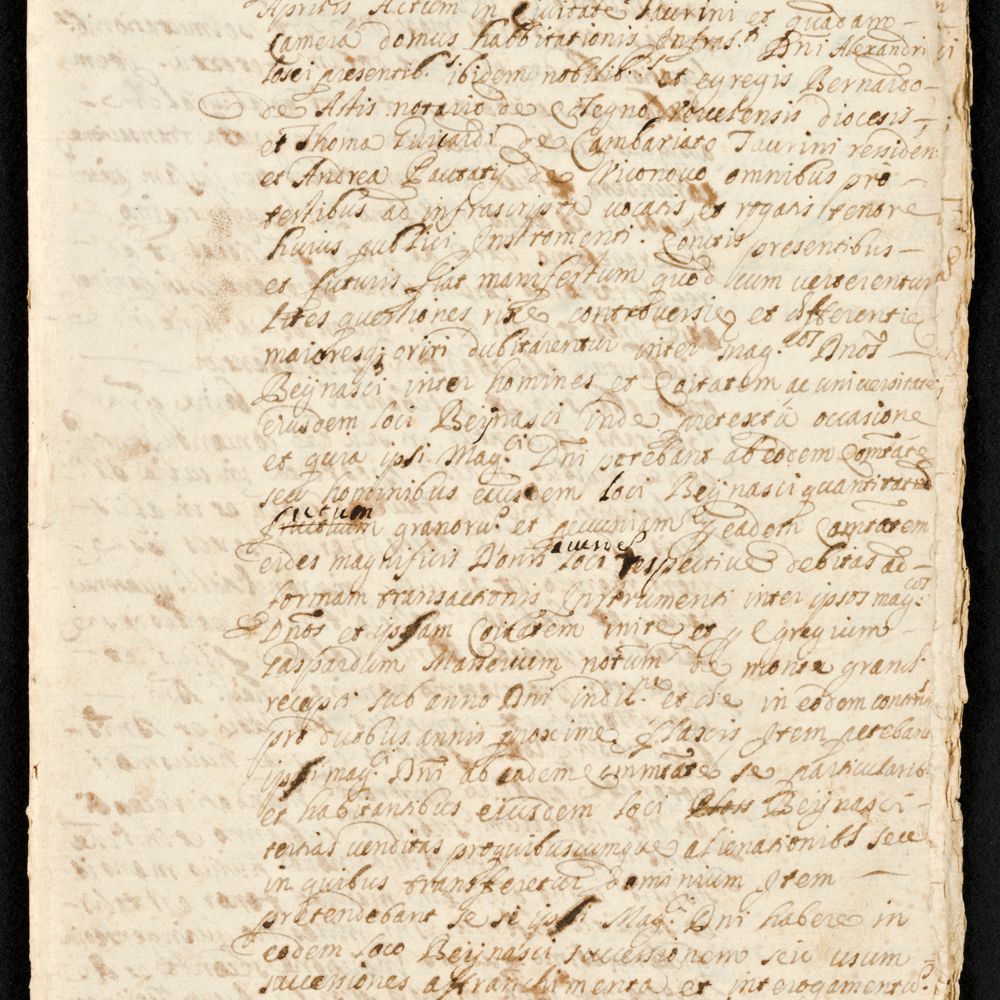 Aprilis Actum in Civitate Taurini et quadam
Camera domus habbitationis Infras.ti Dni Alexandri
losei presentib.s ibidem nobilib.s et egregis Bernardo
de Astis notario de Colegno Taurensis diocesis
et Thoma de Cambariato Taurini residen.
et Andrea de Viconovo omnibus pro
testibus ad infrascripta vocatis et rogatis tenore
huius publici Instromenti. Cunctis presentibus
et futuris fiat manifestum quod cum verterentur
lites questiones rixe controversie et differentie
maioresq; oriri dubitarentur inter mag.cos Dnos
Beijnasci inter homines et Coitatem ac universitate
eiusdem loci Beijnasci inde pretextu occasione
et quia ipsi Mag.ci Dni petebant ab eodem Comtate
seu hominibus eiusdem loci Beijnasci quantitates
fructuum granoru et pecuniam eadem Comtatem
eides magnificis Donis loci respective debitas ad
formam transactionis Instrumenti inter ipsos mag.cos
Dnos et ipsam Coitatem inite et p egregium
Gaspardum notum de monte grandi
recepti sub anno Dni indit.ne et die in eodem contentis
pro duobus annis proxime elapsis Item petebant
ipsi mag.ci Dni ab eadem Comtate se particularib.
et habitantibus eiusdem loci Beijnasci
tertias venditas pro quibuscumque alienationibs seu
in quibus transferetur dominium Item
pretendebant se se ipsi Mag.ci Dni habere in
eodem loco Beijnasci successionem seu usum
successiones affranchimenta et interogamenta